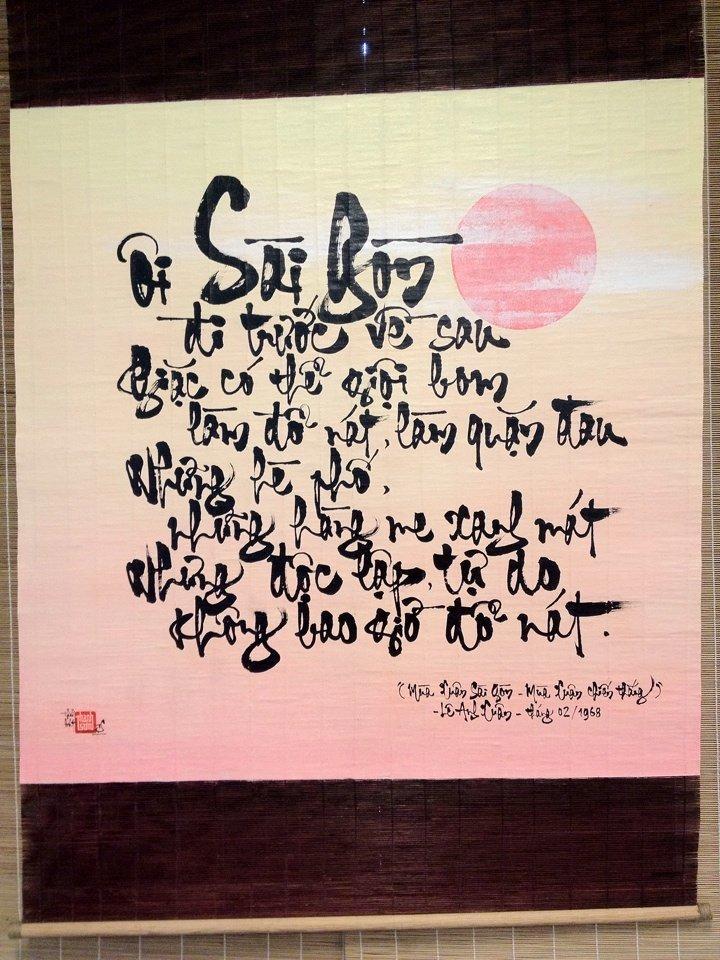 Ôi Sài Gòn
đi trước về sau
Giặc có thể giội bom
làm đổ nát, làm quặn đau
Những hè phố,
những hàng me xanh mát
Nhưng độc lập, tự do
không bao giờ đổ nát.
("Mùa Xuân Sài Gòn - Mùa Xuân chiến thắng")
- Lê Anh Xuân - tháng 02/1968